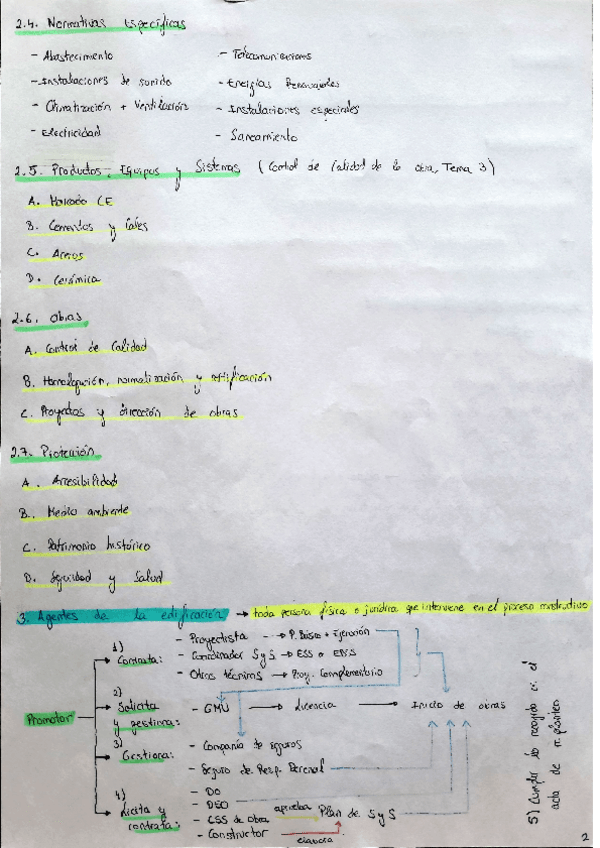 2.4. Normativas Específicas
- Abastecimiento
- Telecomunicaciones
- Instalaciones de sonido
- Energías Renovables
- Climatización + Ventilación
- Instalaciones especiales
- Electricidad
- Saneamiento
2.5. Productos, Equipos y Sistemas (Control de Calidad de la obra, Tema 3)
A. Marcado CE
B. Cementos y Cales
C. Aceros
D. Cerámica
2.6. Obras
A. Control de Calidad
B. Homologación, normalización y certificación
C. Proyectos y dirección de obras
2.7. Protección
A. Accesibilidad
B. Medio ambiente
C. Patrimonio histórico
D. Seguridad y Salud
3. Agentes de la edificación → toda persona física o jurídica que interviene en el proceso constructivo
Promotor
1) Contrata:
- Proyectista → P. Básico + Ejecución
- Coordinador SyS → ESS o EBSS
- Otros técnicos → Proy. Complementario
2) Solicita y gestiona:
- GMU → Licencia → Inicio de obras
3) Gestiona:
- Compañía de seguros
- Seguro de Resp. Decenal
4) Licita y contrata:
- DO
- DEO
- CSS de Obra aprueba Plan de SyS
- Constructor elabora
5) Cumplir lo recogido en el
acta de replanteo
2